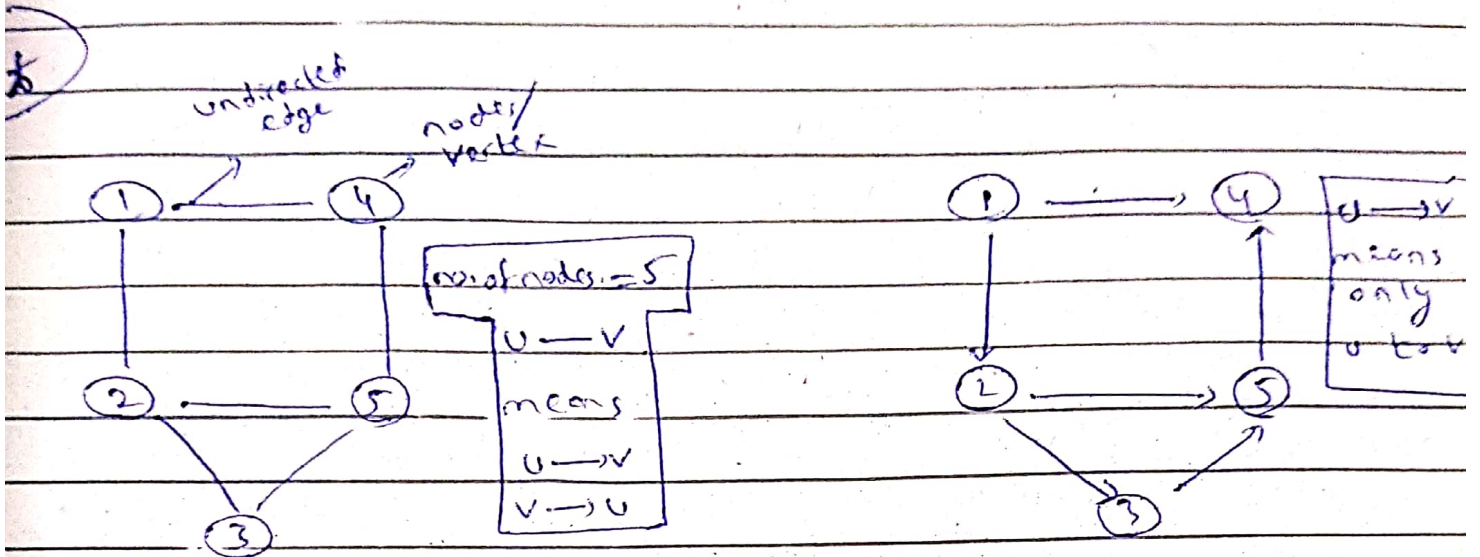 undirected
edge
nodes/
vertex
1
4
2
5
3
no. of nodes = 5
U — V
means
U → V
V → U
1
4
2
5
3
U → V
means
only
u to v